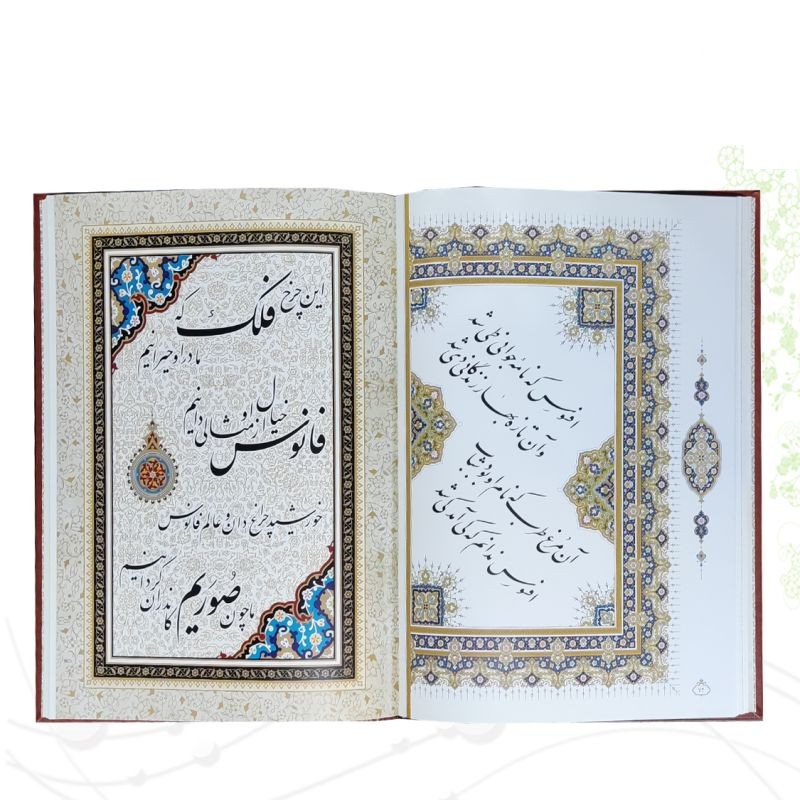 افسوس که نامه جوانی طی شد
وآن تازه بهار زندگانی دی شد
آن مرغ طرب که نام او بود شباب
افسوس ندانم که کی آمد کی شد
این چرخ فلک که
ما در او حیرانیم
فانوس خیال از او مثالی دانیم
خورشید چراغ دان و عالم فانوس
ما چون صُوریم کاندران گردانیم